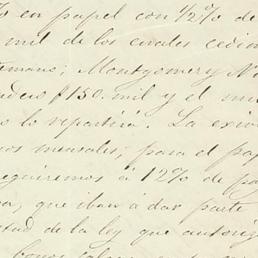 % en papel con 1/2% de
mil de los cuales cedimos
temano; Montgomery N
dero $150. mil y el
lo repartirá. La exi
mensuales; para el pa
seguiremos á 12% de pa
que iban á dar parte
tud de la ley que autori
bonos